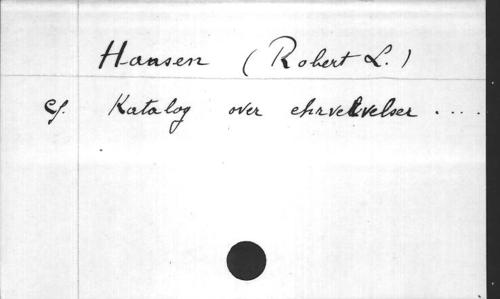 Hansen (Robert L.)
cf. Katalog over ehrvelvelser ....